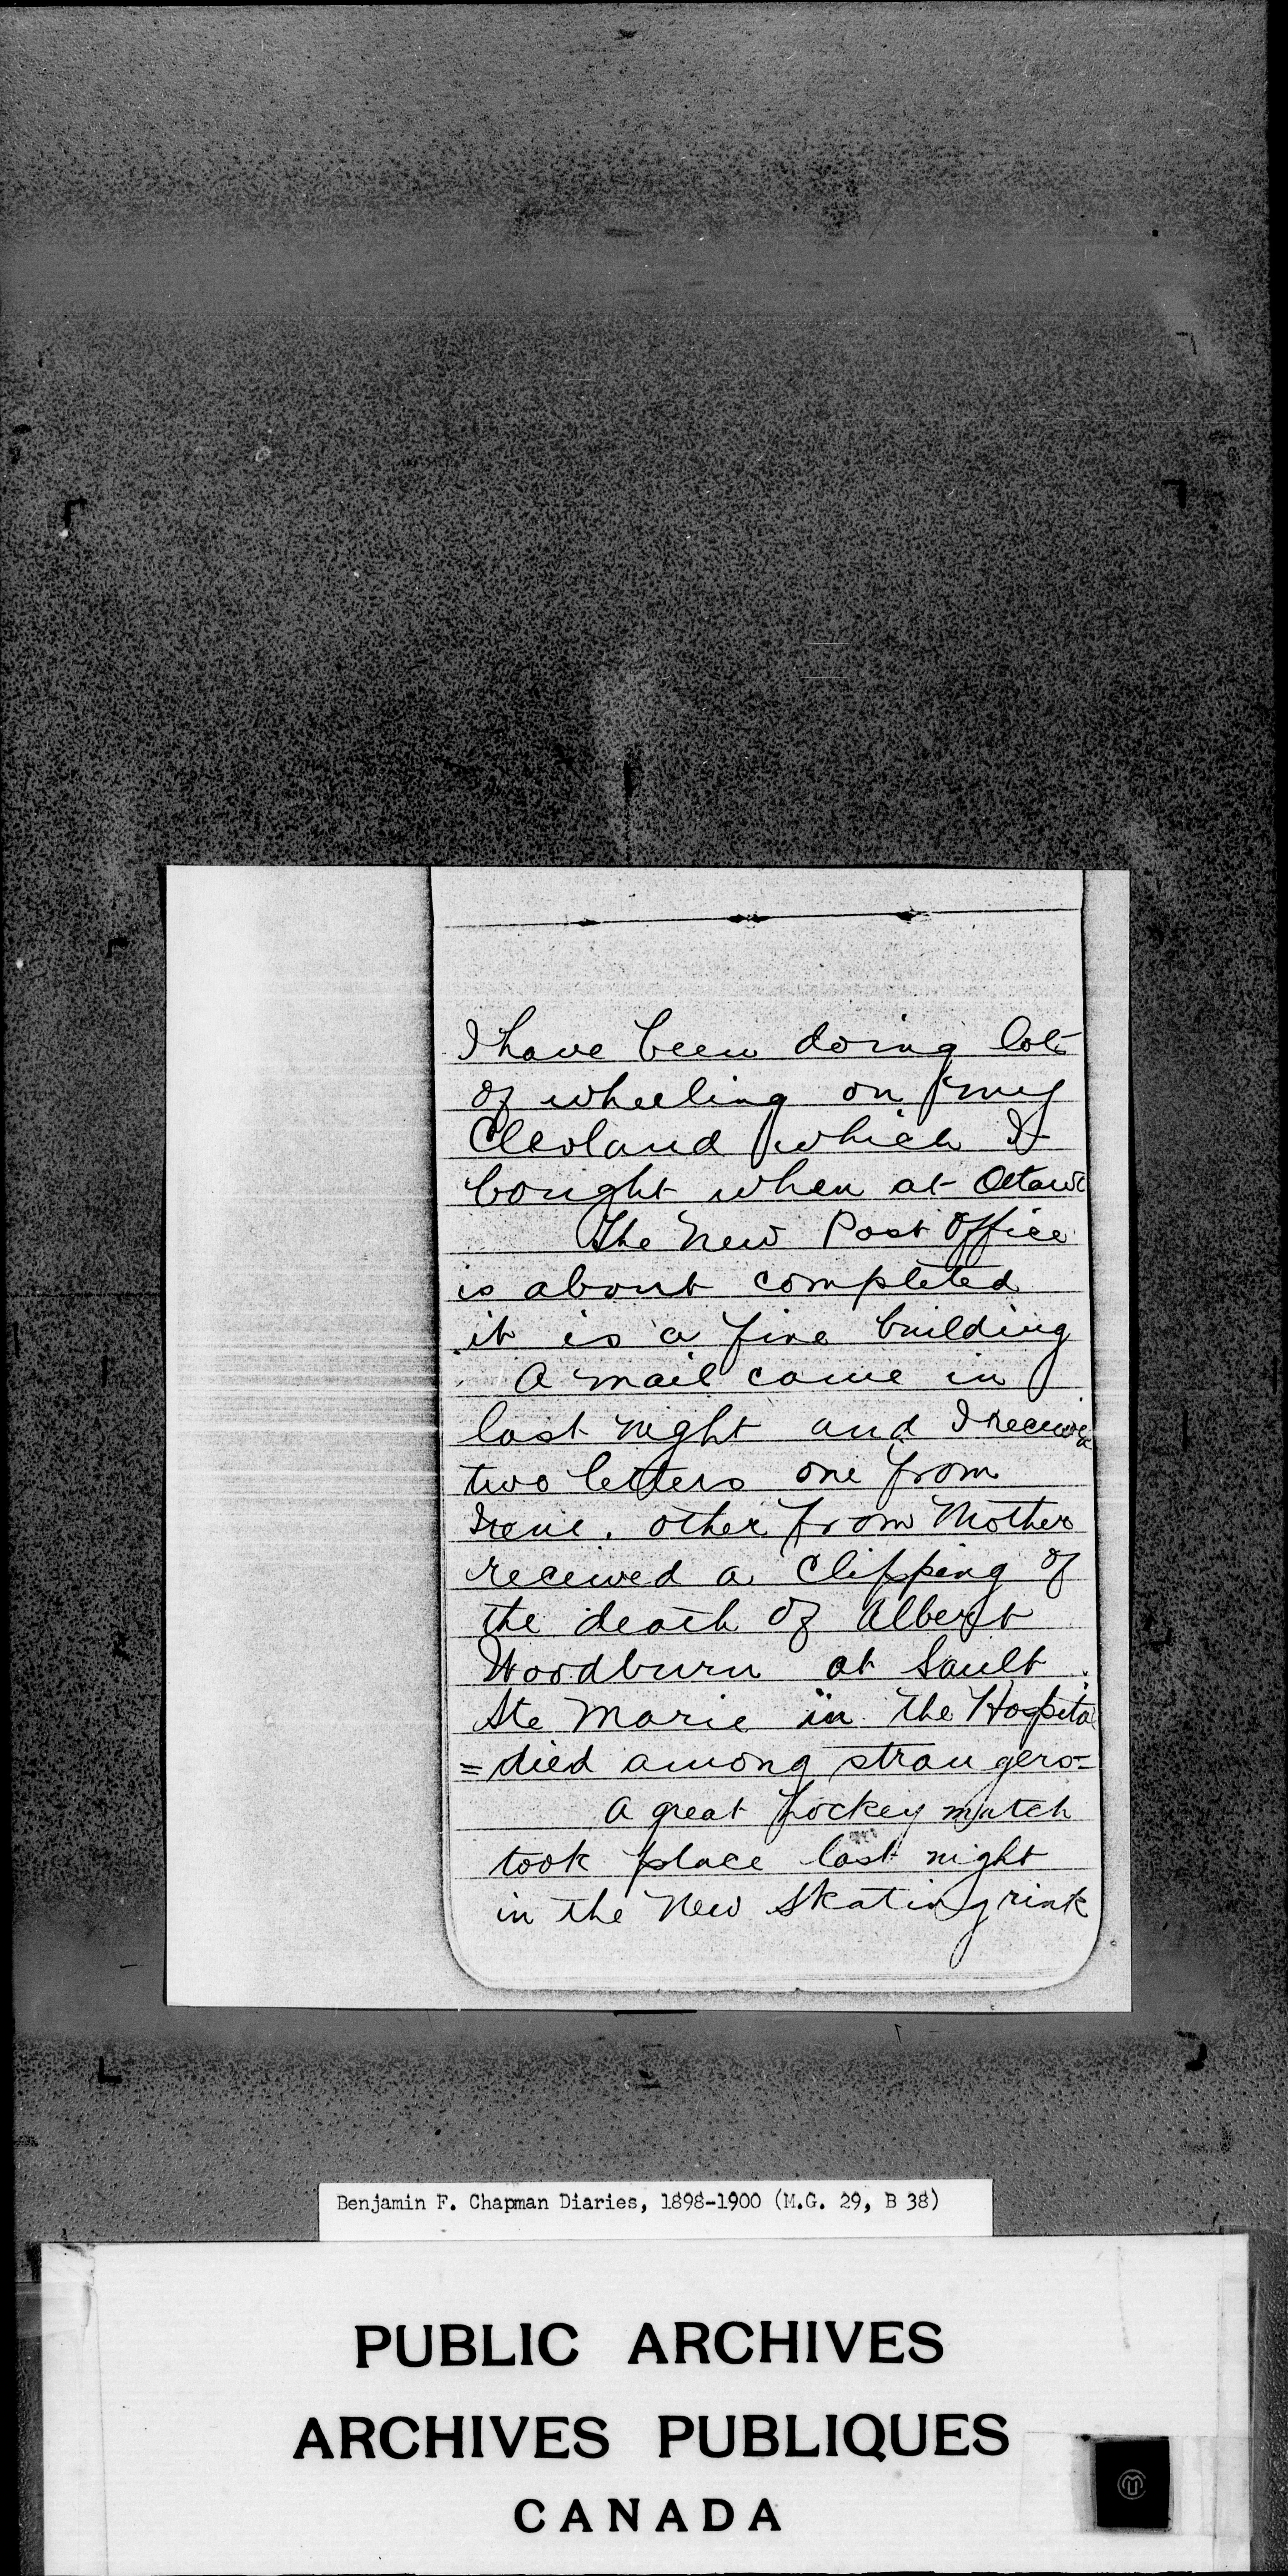 I have been doing lots
of wheeling on my
Clevland which I
bought when at Ottawa
The New Post Office
is about completed
it is a fine building
A mail came in
last night and I received
two letters one from
Irene. other from Mother
received a Clipping of
the death of Albert
Woodburn at Sault
Ste Marie in the Hospital
= died among strangers =
A great hockey match
took place last night
in the New Skating rink
Benjamin F. Chapman Diaries, 1898-1900 (M.G. 29, B 38)
PUBLIC ARCHIVES
ARCHIVES PUBLIQUES
CANADA